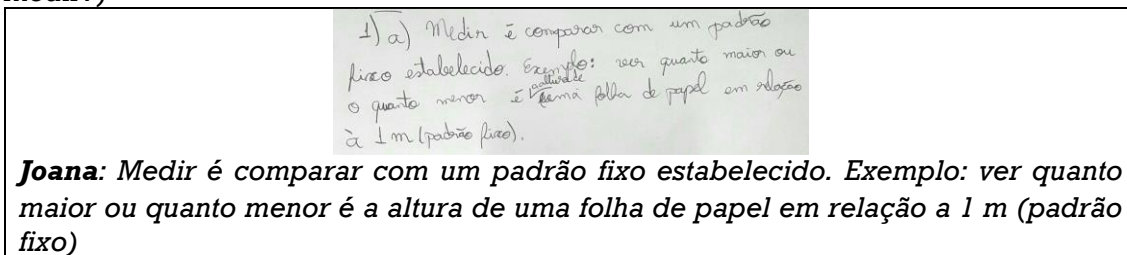 1) a) Medir é comparar com um padrão
fixo estabelecido. Exemplo: ver quanto maior ou
o quanto menor é a altura de uma folha de papel em relação
à 1 m (padrão fixo).
Joana: Medir é comparar com um padrão fixo estabelecido. Exemplo: ver quanto
maior ou quanto menor é a altura de uma folha de papel em relação a 1 m (padrão
fixo)